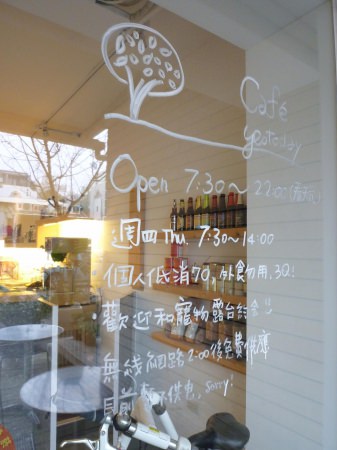 Café
yesterday
Open 7:30~22:00
週四 Thu. 7:30~14:00
個人低消70,外食勿用,3Q!
·歡迎和寵物露台
無線網路2:00後免費供應
目前 不供應, sorry!